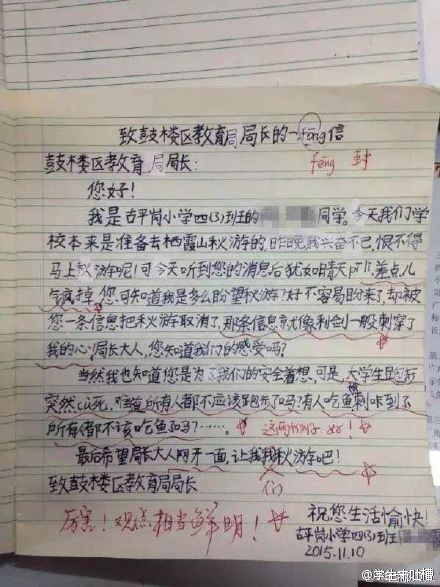 致鼓楼区教育局局长的一fēng信
fēng 封
鼓楼区教育局局长:
您好!
我是古平岗小学四(3)班的 同学。今天我们学
校本来是准备去栖霞山秋游的,昨晚,我兴奋不已,恨不得
马上秋游呢!可今天听到您的消息后犹如晴天pī lì,差点儿
气疯掉。您可知道我是多么盼望秋游?好不容易盼来了,却被
您一条信息把秋游取消了,那条信息就像利剑一般刺穿了
我的心,局长大人,您知道我们的感受吗?
当然我也知道您是为了我们的安全着想,可是,大学生跑步
突然cù死,难道所有人都不应该跑步了吗?有人吃鱼刺咔到了,
所有人都不该吃鱼了吗?……。这两个例子好!
最后希望局长大人网开一面,让我我秋游吧!
们
致鼓楼区教育局局长
厉害!观点相当鲜明!
祝您生活愉快!
古平岗小学四(3)班
2015.11.10
@学生来吐槽